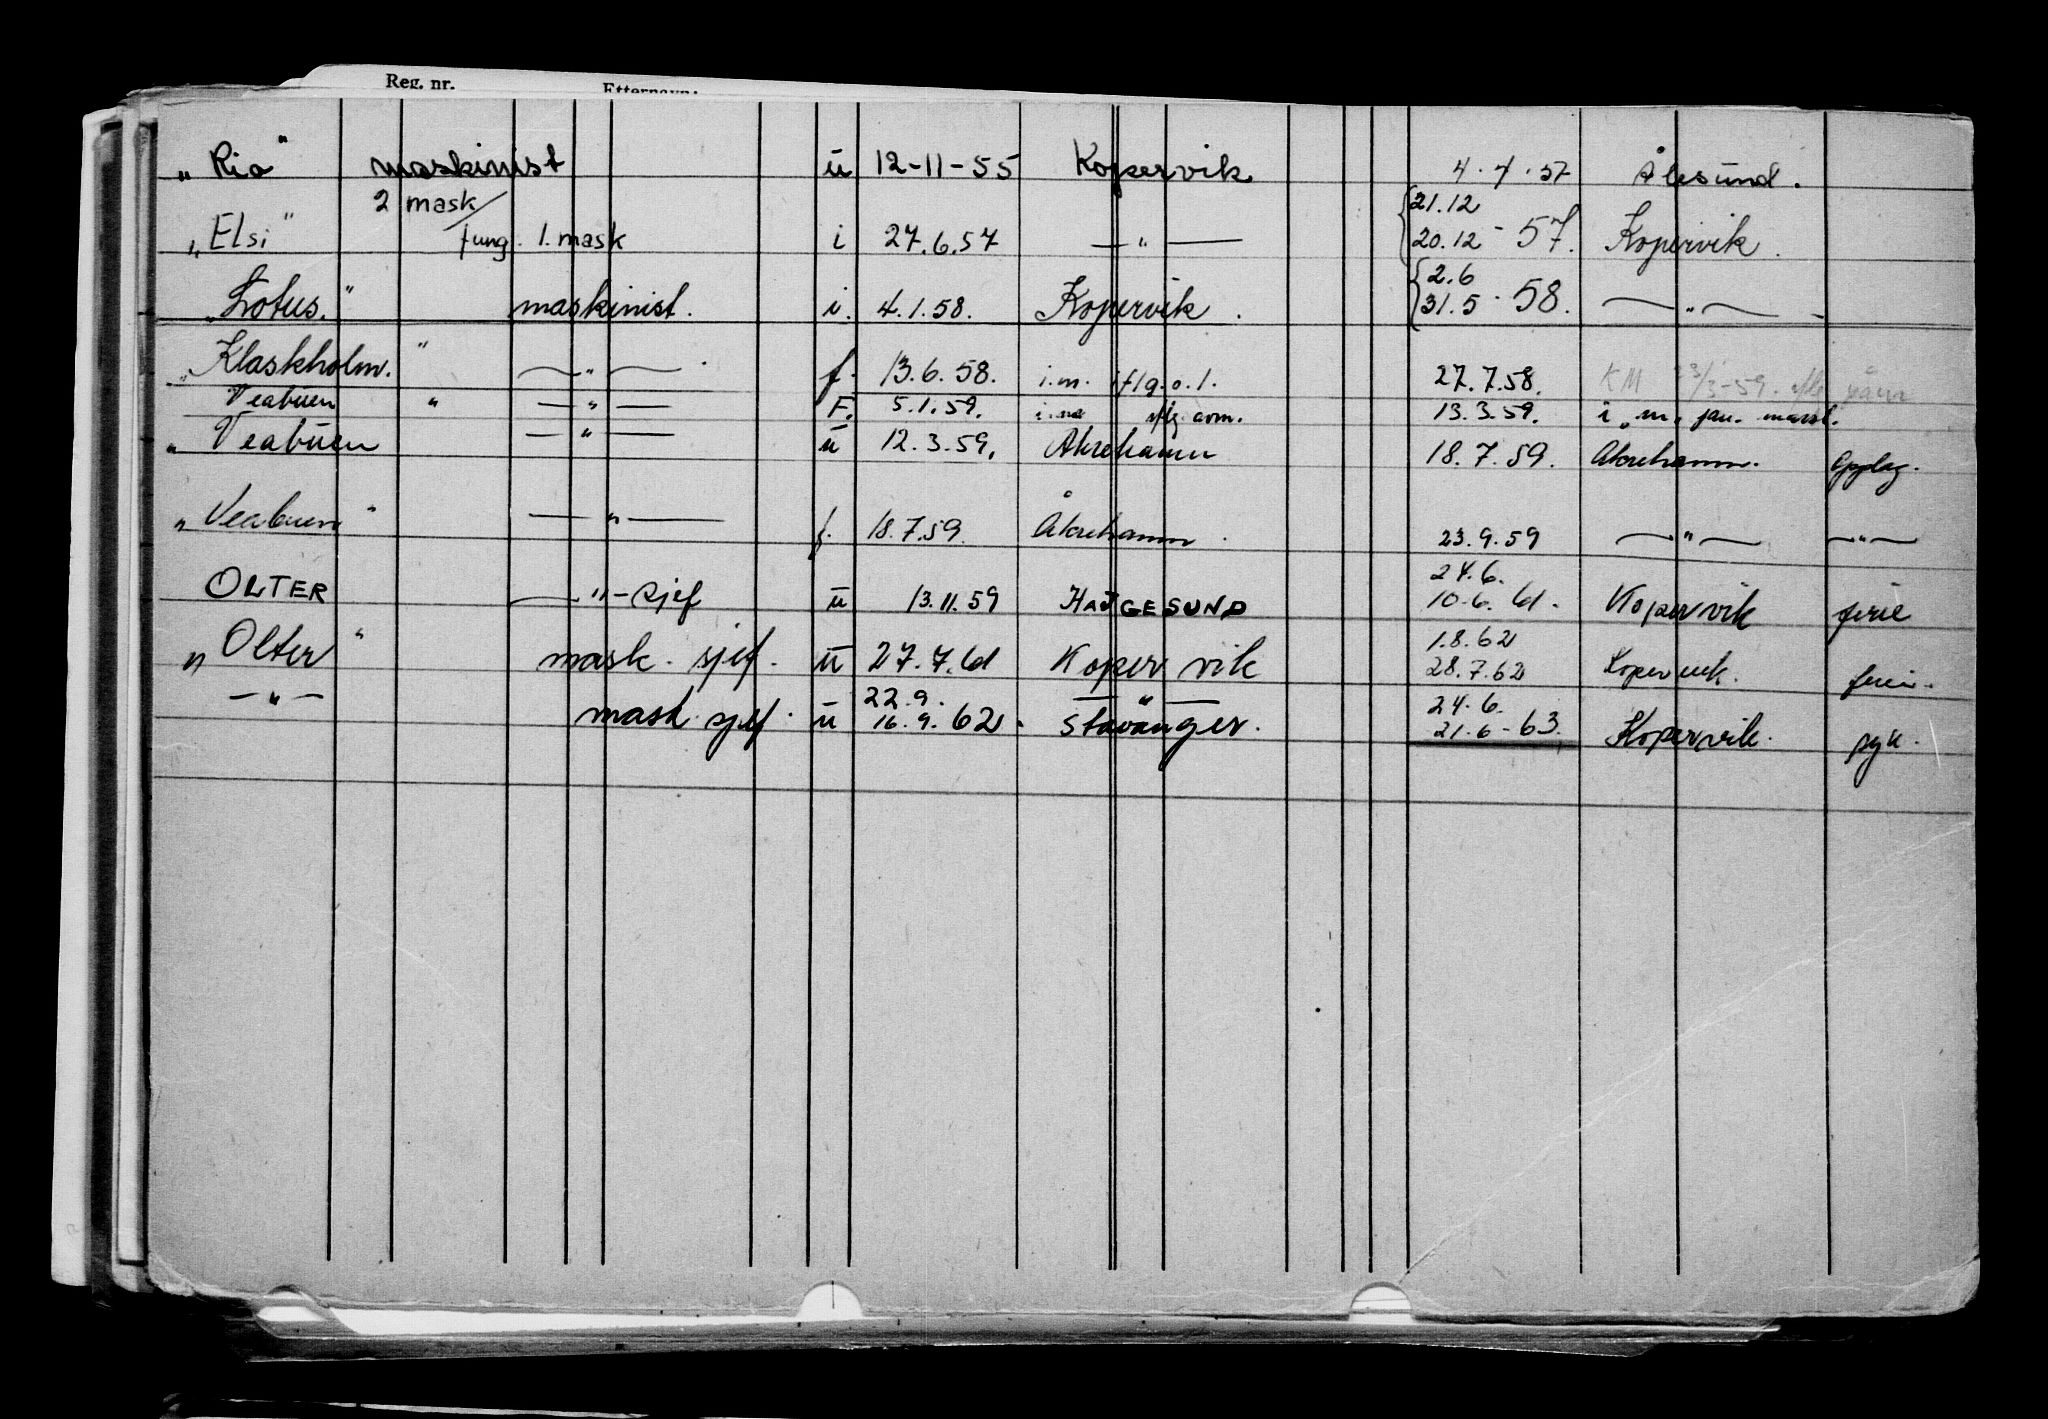 Reg. nr. Etternavn:
„Ria" maskinist ū 12-11-55 Kopervik 4.7.57 Ålesund.
2 mask/ 21.12
„Elsi" fung. 1. mask i 27.6.57 —"— 20.12-57. Kopervik.
2.6
„Lotus." maskinist. i. 4.1.58. Kopervik. 31.5-58. —"—
„Klaskholm." —"— f. 13.6.58. i.m. 27.7.58. KM 23/3-59.
Veabuen " —"— F. 5.1.59. 13.3.59. i.m.
„Veabuen —"— ū 12.3.59. Åkrehamn 18.7.59. Åkrehamn. Opplag.
„Veabuen" —"— f. 18.7.59. Åkrehamn. 23.9.59 —"— —"—
24.6.
OLTER —"-sjef ū 13.11.59 HAUGESUND 10.6.61. Kopervik ferie
1.8.62
„Olter" mask. sjef. ū 27.7.61 Kopervik 28.7.62 Kopervik. ferie.
—"— 22.9. —"— 24.6.
mask. sjef. ū 16.9.62. Stavanger. 21.6-63. Kopervik. syk.